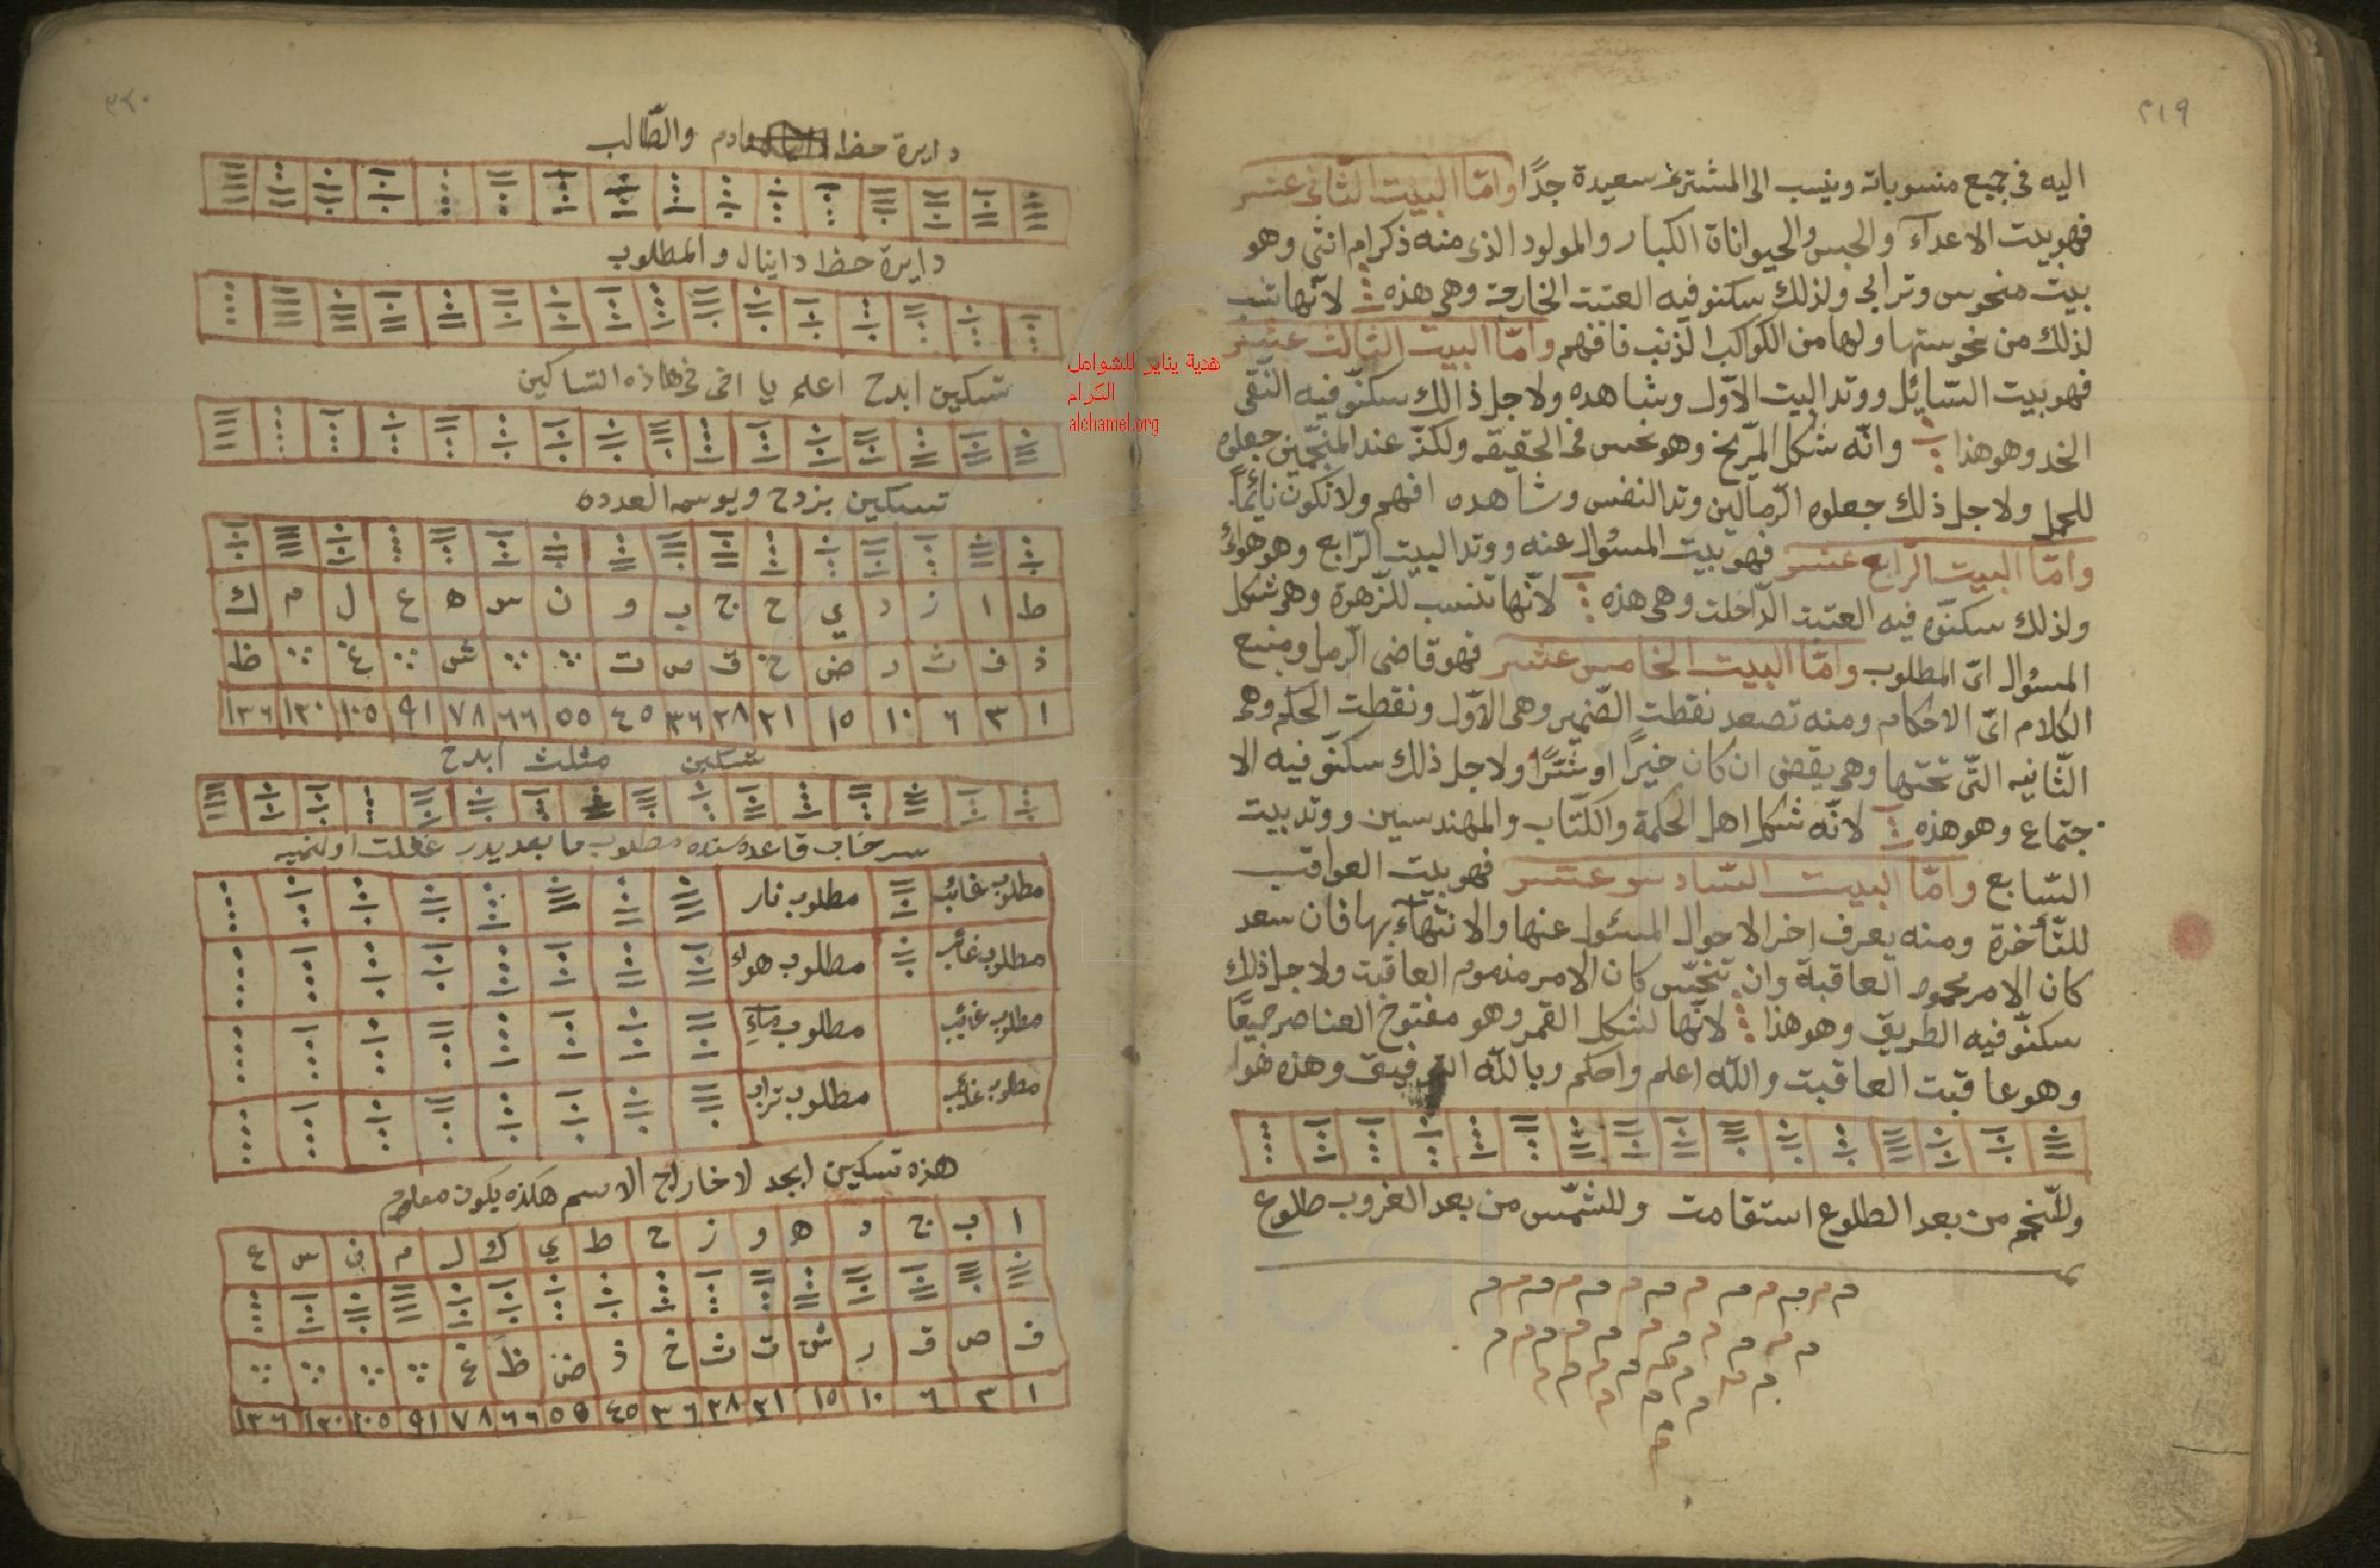 ٣١٩
اليه فى جميع منسوباته وينسب الى المشترى سعيدة جدًا وامّا البيت الثّانى عشر
فهو بيت الاعداء والحبس والحيواناة الكبار والمولود الذى منه ذكر ام انثى وهو
بيت منحوس وترابى ولذلك سكنو فيه العتبت الخارجة وهى هذه لانّها
لذلك من نحوستها ولها من الكواكب الذنب فافهم وامّا البيت الثالث عشر
فهو بيت السّايئل ووتد البيت الاوّل وشاهده ولاجل ذالك سكنّو فيه النّقى
الخد وهو هذا وانّه شكل المرّيخ وهو نحس فى الحقيقه ولكنّه عند المنجّمين جعلوه
للحمل ولاجل ذلك جعلوه الرّمالّين وتد النفس وشاهده افهم ولا تكون نائمًا
وامّا البيت الرّابع عشر فهو بيت المسئول عنه ووتد البيت الرّابع وهو هوائ
ولذلك سكنّوه فيه العتبت الدّاخلت وهى هذه لانّها تنسب للزّهرة وهى شكل
المسئول اىّ المطلوب وامّا البيت الخامس عشر فهو قاضى الرّمل ومنبع
الكلام اىّ الاحكام ومنه تصعد نقطت الضّمير وهى الاوّل ونقطت الحكم وهى
الثّانيه التّى تحتها وهى يقضى ان كان خيرًا او شّرًا ولاجل ذلك سكنّو فيه الا
جتماع وهو هذه لانّه شكل اهل الحكمة والكتّاب والمهندسين ووتد بيت
السّابع وامّا البيت السّادس عشر فهو بيت العواقب
للتّأخرة ومنه يعرف اخر الاحوال المسئول عنها والانتهآء بها فان سعد
كان الامر محمود العاقبة وان تنحّس كان الامر مذموم العاقبت ولاجل ذلك
سكنّو فيه الطريق وهو هذا لانّها لشكل القمر وهو مفتوح العناصر جميعًا
وهو عاقبت العاقبت والله اعلم واحكم وبالله التوفيق وهذه هوا
وللنّجم من بعد الطلوع استقامت وللشّمس من بعد الغروب طلوع
م م م م م م م م م م م م م
م م م م م م م م م م
م م م م م م م م
م م م م
٣٢٠
دايرة حظ والطّالب
دايرة حظ دانيال والمطلوب
تسكين ابدح اعلم يا اخى فى هاذه التساكين
تسكين بزدح العدده
ط ا ز د ي ح ج ب و ن س ه ع ل م ك
ذ ف ث ر ض خ ق ص ت ش غ ظ
١ ٣ ٦ ١٠ ١٥ ٢١ ٢٨ ٣٦ ٤٥ ٥٥ ٦٦ ٧٨ ٩١ ١٠٥ ١٢٠ ١٣٦
تسكين مثلث ابدح
قاعده مطلوب ما بعد يدر غفلت
مطلوب غائب مطلوب نار
مطلوب غائب مطلوب هواء
مطلوب غائب مطلوب ماء
مطلوب غائب مطلوب تراب
هذه تسكين ابجد لاخاراج الاسم هكذه يكون معلوم
ا ب ج د ه و ز ح ط ي ك ل م ن س ع
ف ص ق ر ش ت ث خ ذ ض ظ غ
١ ٣ ٦ ١٠ ١٥ ٢١ ٢٨ ٣٦ ٤٥ ٥٥ ٦٦ ٧٨ ٩١ ١٠٥ ١٢٠ ١٣٦
هدية يناير للشوامل
الكرام
alchamel.org